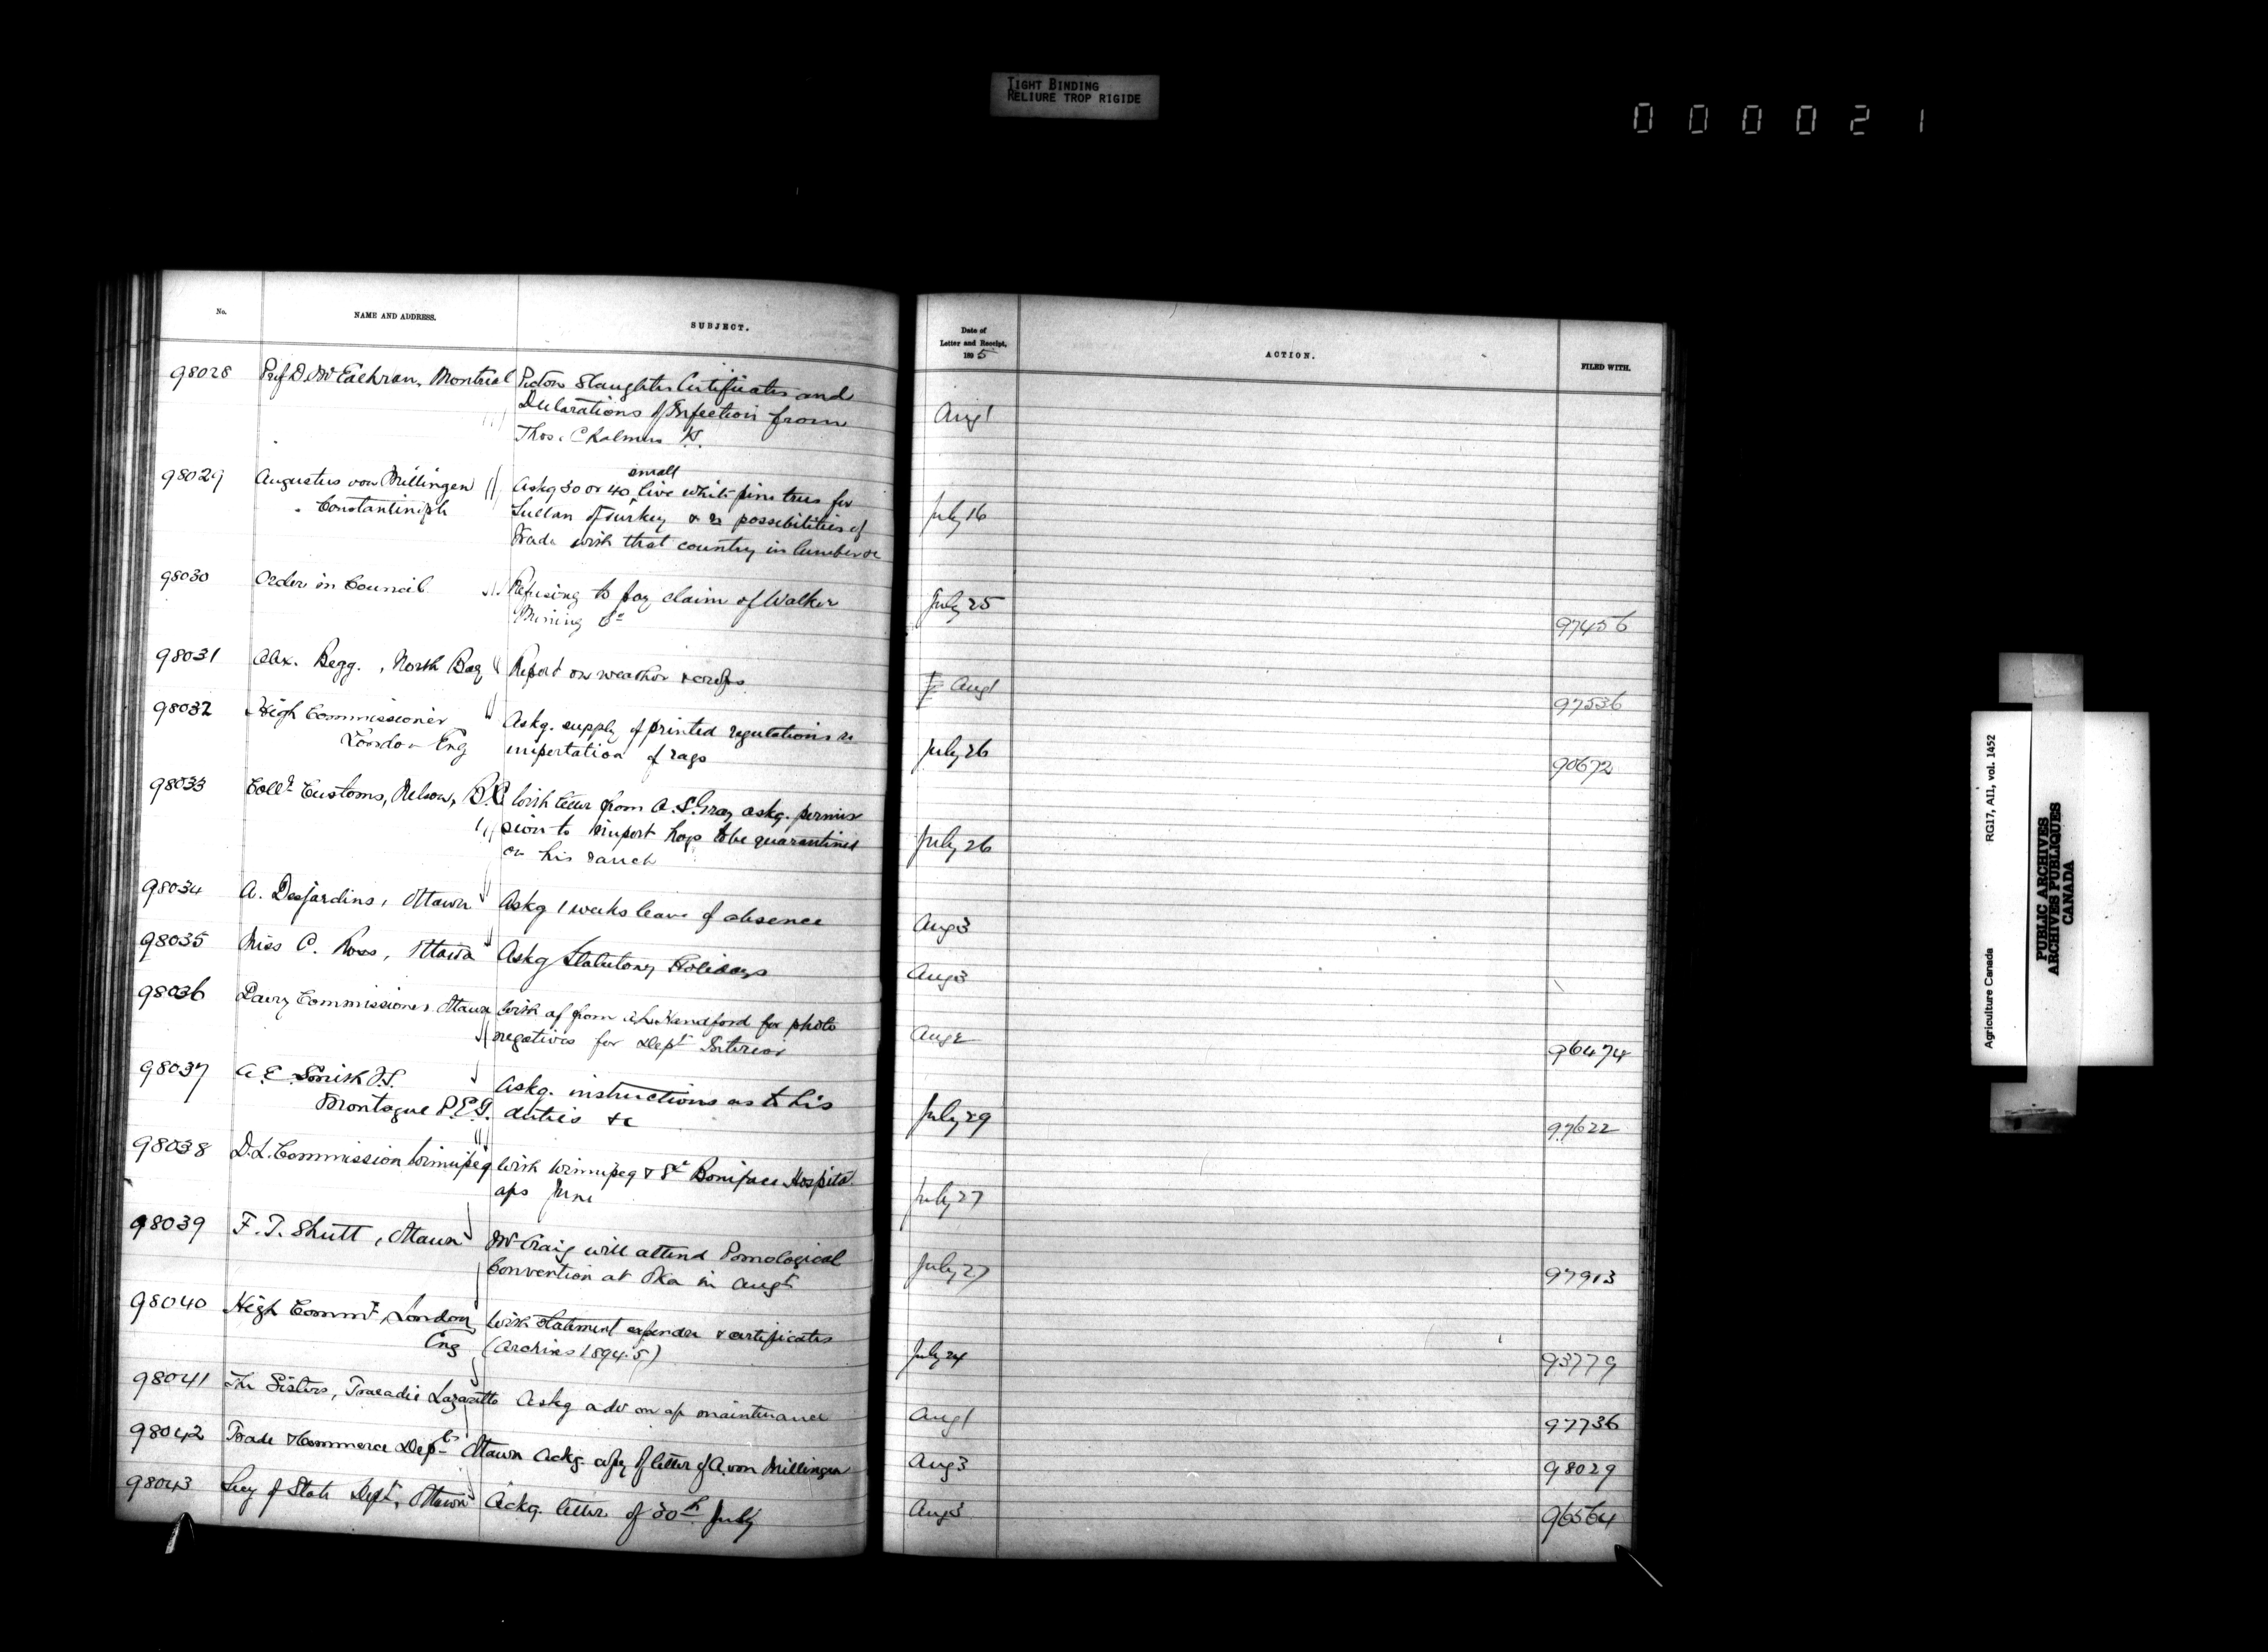 TIGHT BINDING
RELIURE TROP RIGIDE
000021
No.
NAME AND ADDRESS.
SUBJECT.
Date of
Letter and Receipt,
1895
ACTION.
FILED WITH.
98028 Prof D. McEachran, Montreal Pictou Slaughter Certificates and
Declarations of Infection from
Thos. Chalmers Aug 1
98029 Augustus von Millingen Askg 30 or 40 small live white pine trees for
Constantinople Sultan of Turkey & re possibilities of July 16
trade with that country in lumber &c
98030 Order in Council Refusing to pay claim of Walker July 25
Mining Co 97456
98031 Alex. Begg, North Bay Report on weather & crops Aug 1 97536
98032 High Commissioner Askg. supply of printed regulations re
London Eng importation of rags July 26 90672
98033 Collr Customs, Nelson, B.C. With letter from A. S. Gray askg. permis
sion to import hogs to be quarantined July 26
on his ranch
98034 A. Desjardins, Ottawa Askg 1 weeks leave of absence Aug 3
98035 Miss C. Ross, Ottawa Askg Statutory Holidays Aug 3
98036 Dairy Commissioner Ottawa With a/c from Handford for photo
negatives for Dept Interior Aug 2 96474
98037 A. E. Smith Askg. instructions as to his
Montague P.E.I. duties &c July 29 97622
98038 D.L. Commission Winnipeg With Winnipeg & St Boniface Hospital
a/cs June July 27
98039 F. T. Shutt, Ottawa Mr Craig will attend Pomological
Convention at Oka in Augt July 27 97913
98040 High Commr, London With statement expendre & certificates
Eng (Archives 1894.5) July 24 93779
98041 The Sisters, Tracadie Lazaretto Askg adv on a/c maintenance Aug 1 97736
98042 Trade & Commerce Dept Ottawa Ackg. copy of letter of A. von Millingen Aug 3 98029
98043 Secy of State Dept, Ottawa Ackg. letter of 30th July Aug 3 96564
Agriculture Canada RG17, AI1, vol. 1452
PUBLIC ARCHIVES
ARCHIVES PUBLIQUES
CANADA